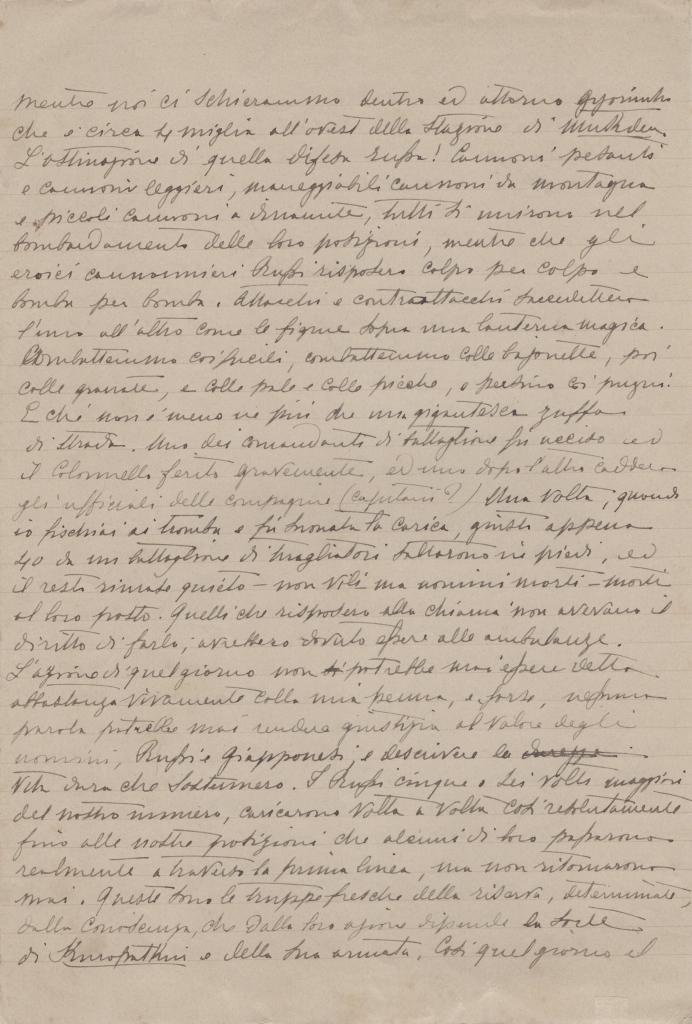 mentre noi ci schierammo dentro ed attorno
che è circa 4 miglia all'ovest della stazione di Mukden.
L'ostinazione di quella difesa russa! Cannoni pesanti
e cannoni leggieri, maneggiabili cannoni da montagna
e piccoli cannoni a dinamite, tutti si unirono nel
bombardamento delle loro posizioni, mentre che gli
eroici cannonieri Russi risposero colpo per colpo e
bomba per bomba. Attacchi e contrattacchi succedettero
l'uno all'altro come le figure sopra una lanterna magica.
Combattemmo coi fucili, combattemmo colle bajonette, poi
colle granate, e colle pale e colle picche, e persino coi pugni!
E chè non è meno ne più che una gigantesca zuffa
di strada. Uno dei comandanti di battaglione fu ucciso ed
il Colonnello ferito gravemente, ed uno dopo l'altro caddero
gli ufficiali delle compagnie (capitani?) Una volta, quando
io fischiai ai tromba e fu suonata la carica, giusti appena
40 da un battaglione di tragliatori saltarono in piedi, ed
il resto rimase quieto – non vili ma uomini morti – morti
al loro posto. Quelli che risposero alla chiama non avevano il
diritto di farlo; avrebbero dovuto essere alle ambulanze.
L'azione di quel giorno non potrebbe mai essere detta
abbastanza vivamente colla mia penna, e, forse, nessuna
parola potrebbe mai rendere giustizia al valore degli
uomini, Russi e Giapponesi, e descrivere la
vita dura che sostennero. I Russi cinque o sei volte maggiori
del nostro numero, caricarono volta a volta così resolutamente
fino alle nostre posizioni che alcuni di loro passarono
realmente a traverso la prima linea, ma non ritornarono
mai. Queste sono le truppe fresche della riserva, determinate,
dalla conoscenza, che dalla loro azione dipende la sorte
di Kuropatkin e della sua armata. Così quel giorno il